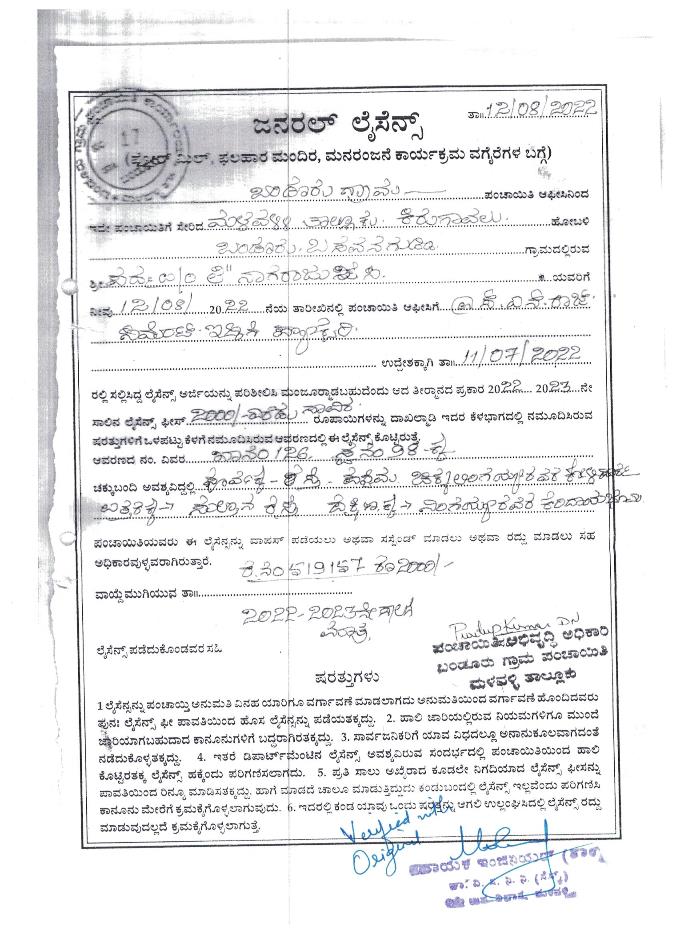 ತಾ॥ 12/08/2022
ಜನರಲ್ ಲೈಸೆನ್ಸ್
ಮಿಲ್, ಫಲಹಾರ ಮಂದಿರ, ಮನರಂಜನೆ ಕಾರ್ಯಕ್ರಮ ವಗೈರೆಗಳ ಬಗ್ಗೆ)
ಬಂಡೂರು ಗ್ರಾಮ ಪಂಚಾಯಿತಿ ಆಫೀಸಿನಿಂದ
ಇದೇ ಪಂಚಾಯಿತಿಗೆ ಸೇರಿದ ಮಳವಳ್ಳಿ ತಾಲ್ಲೂಕು ಕಿರುಗಾವಲು ಹೋಬಳಿ
ಬಂಡೂರು ಬಸವನಗುಡಿ ಗ್ರಾಮದಲ್ಲಿರುವ
ಶ್ರೀ ನಾಗರಾಜು ಯವರಿಗೆ
ನೀವು 12/08/ 2022 ನೆಯ ತಾರೀಖಿನಲ್ಲಿ ಪಂಚಾಯಿತಿ ಆಫೀಸಿಗೆ
ಸಿಮೆಂಟ್ ಇಟ್ಟಿಗೆ ಫ್ಯಾಕ್ಟರಿ
ಉದ್ದೇಶಕ್ಕಾಗಿ ತಾ॥ 11/07/2022
ರಲ್ಲಿ ಸಲ್ಲಿಸಿದ್ದ ಲೈಸೆನ್ಸ್ ಅರ್ಜಿಯನ್ನು ಪರಿಶೀಲಿಸಿ ಮಂಜೂರ್‍ಮಾಡಬಹುದೆಂಬ ಆದ ತೀರ್ಮಾನದ ಪ್ರಕಾರ 2022 2023 ನೇ
ಸಾಲಿನ ಲೈಸೆನ್ಸ್ ಫೀಸ್ 2000/- ಎರಡು ಸಾವಿರ ರೂಪಾಯಿಗಳನ್ನು ದಾಖಲ್ಮಾಡಿ ಇದರ ಕೆಳಭಾಗದಲ್ಲಿ ನಮೂದಿಸಿರುವ
ಷರತ್ತುಗಳಿಗೆ ಒಳಪಟ್ಟು ಕೆಳಗೆ ನಮೂದಿಸಿರುವ ಆವರಣದಲ್ಲಿ ಈ ಲೈಸೆನ್ಸ್ ಕೊಟ್ಟಿರುತ್ತೆ
ಆವರಣದ ನಂ. ವಿವರ ಖಾನಂ 126 ಸ್ವ ನಂ 98
ಚಕ್ಕುಬಂದಿ ಅವಶ್ಯವಿದ್ದಲ್ಲಿ ಪೂರ್ವಕ್ಕೆ - ರಸ್ತೆ
ಉತ್ತರಕ್ಕೆ ರಸ್ತೆ ದಕ್ಷಿಣಕ್ಕೆ
ಪಂಚಾಯಿತಿಯವರು ಈ ಲೈಸೆನ್ಸನ್ನು ವಾಪಸ್ ಪಡೆಯಲು ಅಥವಾ ಸಸ್ಪೆಂಡ್ ಮಾಡಲು ಅಥವಾ ರದ್ದು ಮಾಡಲು ಸಹ
ಅಧಿಕಾರವುಳ್ಳವರಾಗಿರುತ್ತಾರೆ. 2000/-
ವಾಯ್ದೆ ಮುಗಿಯುವ ತಾ॥
2022-2023ನೇ ಸಾಲಿಗೆ
ಮಾತ್ರ
Pradeep Kumar DN
ಲೈಸೆನ್ಸ್ ಪಡೆದುಕೊಂಡವರ ಸಹಿ
ಪಂಚಾಯಿತಿ ಅಭಿವೃದ್ಧಿ ಅಧಿಕಾರಿ
ಬಂಡೂರು ಗ್ರಾಮ ಪಂಚಾಯಿತಿ
ಮಳವಳ್ಳಿ ತಾಲ್ಲೂಕು
ಷರತ್ತುಗಳು
1 ಲೈಸೆನ್ಸನ್ನು ಪಂಚಾಯ್ತಿ ಅನುಮತಿ ವಿನಹ ಯಾರಿಗೂ ವರ್ಗಾವಣೆ ಮಾಡಲಾಗದು ಅನುಮತಿಯಿಂದ ವರ್ಗಾವಣೆ ಹೊಂದಿದವರು
ಪುನಃ ಲೈಸೆನ್ಸ್ ಫೀ ಪಾವತಿಯಿಂದ ಹೊಸ ಲೈಸೆನ್ಸನ್ನು ಪಡೆಯತಕ್ಕದ್ದು. 2. ಹಾಲಿ ಜಾರಿಯಲ್ಲಿರುವ ನಿಯಮಗಳಿಗೂ ಮುಂದೆ
ಜಾರಿಯಾಗಬಹುದಾದ ಕಾನೂನುಗಳಿಗೆ ಬದ್ಧರಾಗಿರತಕ್ಕದ್ದು. 3. ಸಾರ್ವಜನಿಕರಿಗೆ ಯಾವ ವಿಧದಲ್ಲೂ ಅನಾನುಕೂಲವಾಗದಂತೆ
ನಡೆದುಕೊಳ್ಳತಕ್ಕದ್ದು. 4. ಇತರೆ ಡಿಪಾರ್ಟ್‌ಮೆಂಟಿನ ಲೈಸೆನ್ಸ್ ಅವಶ್ಯವಿರುವ ಸಂದರ್ಭದಲ್ಲಿ ಪಂಚಾಯಿತಿಯಿಂದ ಹಾಲಿ
ಕೊಟ್ಟಿರತಕ್ಕ ಲೈಸೆನ್ಸ್ ಹಕ್ಕೆಂದು ಪರಿಗಣಿಸಲಾಗದು. 5. ಪ್ರತಿ ಸಾಲು ಅಖೈರಾದ ಕೂಡಲೇ ನಿಗದಿಯಾದ ಲೈಸೆನ್ಸ್ ಫೀಸನ್ನು
ಪಾವತಿಯಿಂದ ರಿನ್ಯೂ ಮಾಡಿಸತಕ್ಕದ್ದು. ಹಾಗೆ ಮಾಡದೆ ಚಾಲೂ ಮಾಡುತ್ತಿದ್ದುದು ಕಂಡುಬಂದಲ್ಲಿ ಲೈಸೆನ್ಸ್ ಇಲ್ಲವೆಂದು ಪರಿಗಣಿಸಿ
ಕಾನೂನು ಮೇರೆಗೆ ಕ್ರಮಕೈಗೊಳ್ಳಲಾಗುವುದು. 6. ಇದರಲ್ಲಿ ಕಂಡ ಯಾವು ಒಂದು ಷರತ್ತನ್ನು ಆಗಲಿ ಉಲ್ಲಂಘಿಸಿದಲ್ಲಿ ಲೈಸೆನ್ಸ್ ರದ್ದು
ಮಾಡುವುದಲ್ಲದೆ ಕ್ರಮಕೈಗೊಳ್ಳಲಾಗುತ್ತೆ.
Verified with
Original
ಸಹಾಯಕ ಇಂಜಿನಿಯರ್ (ತಾಂ)